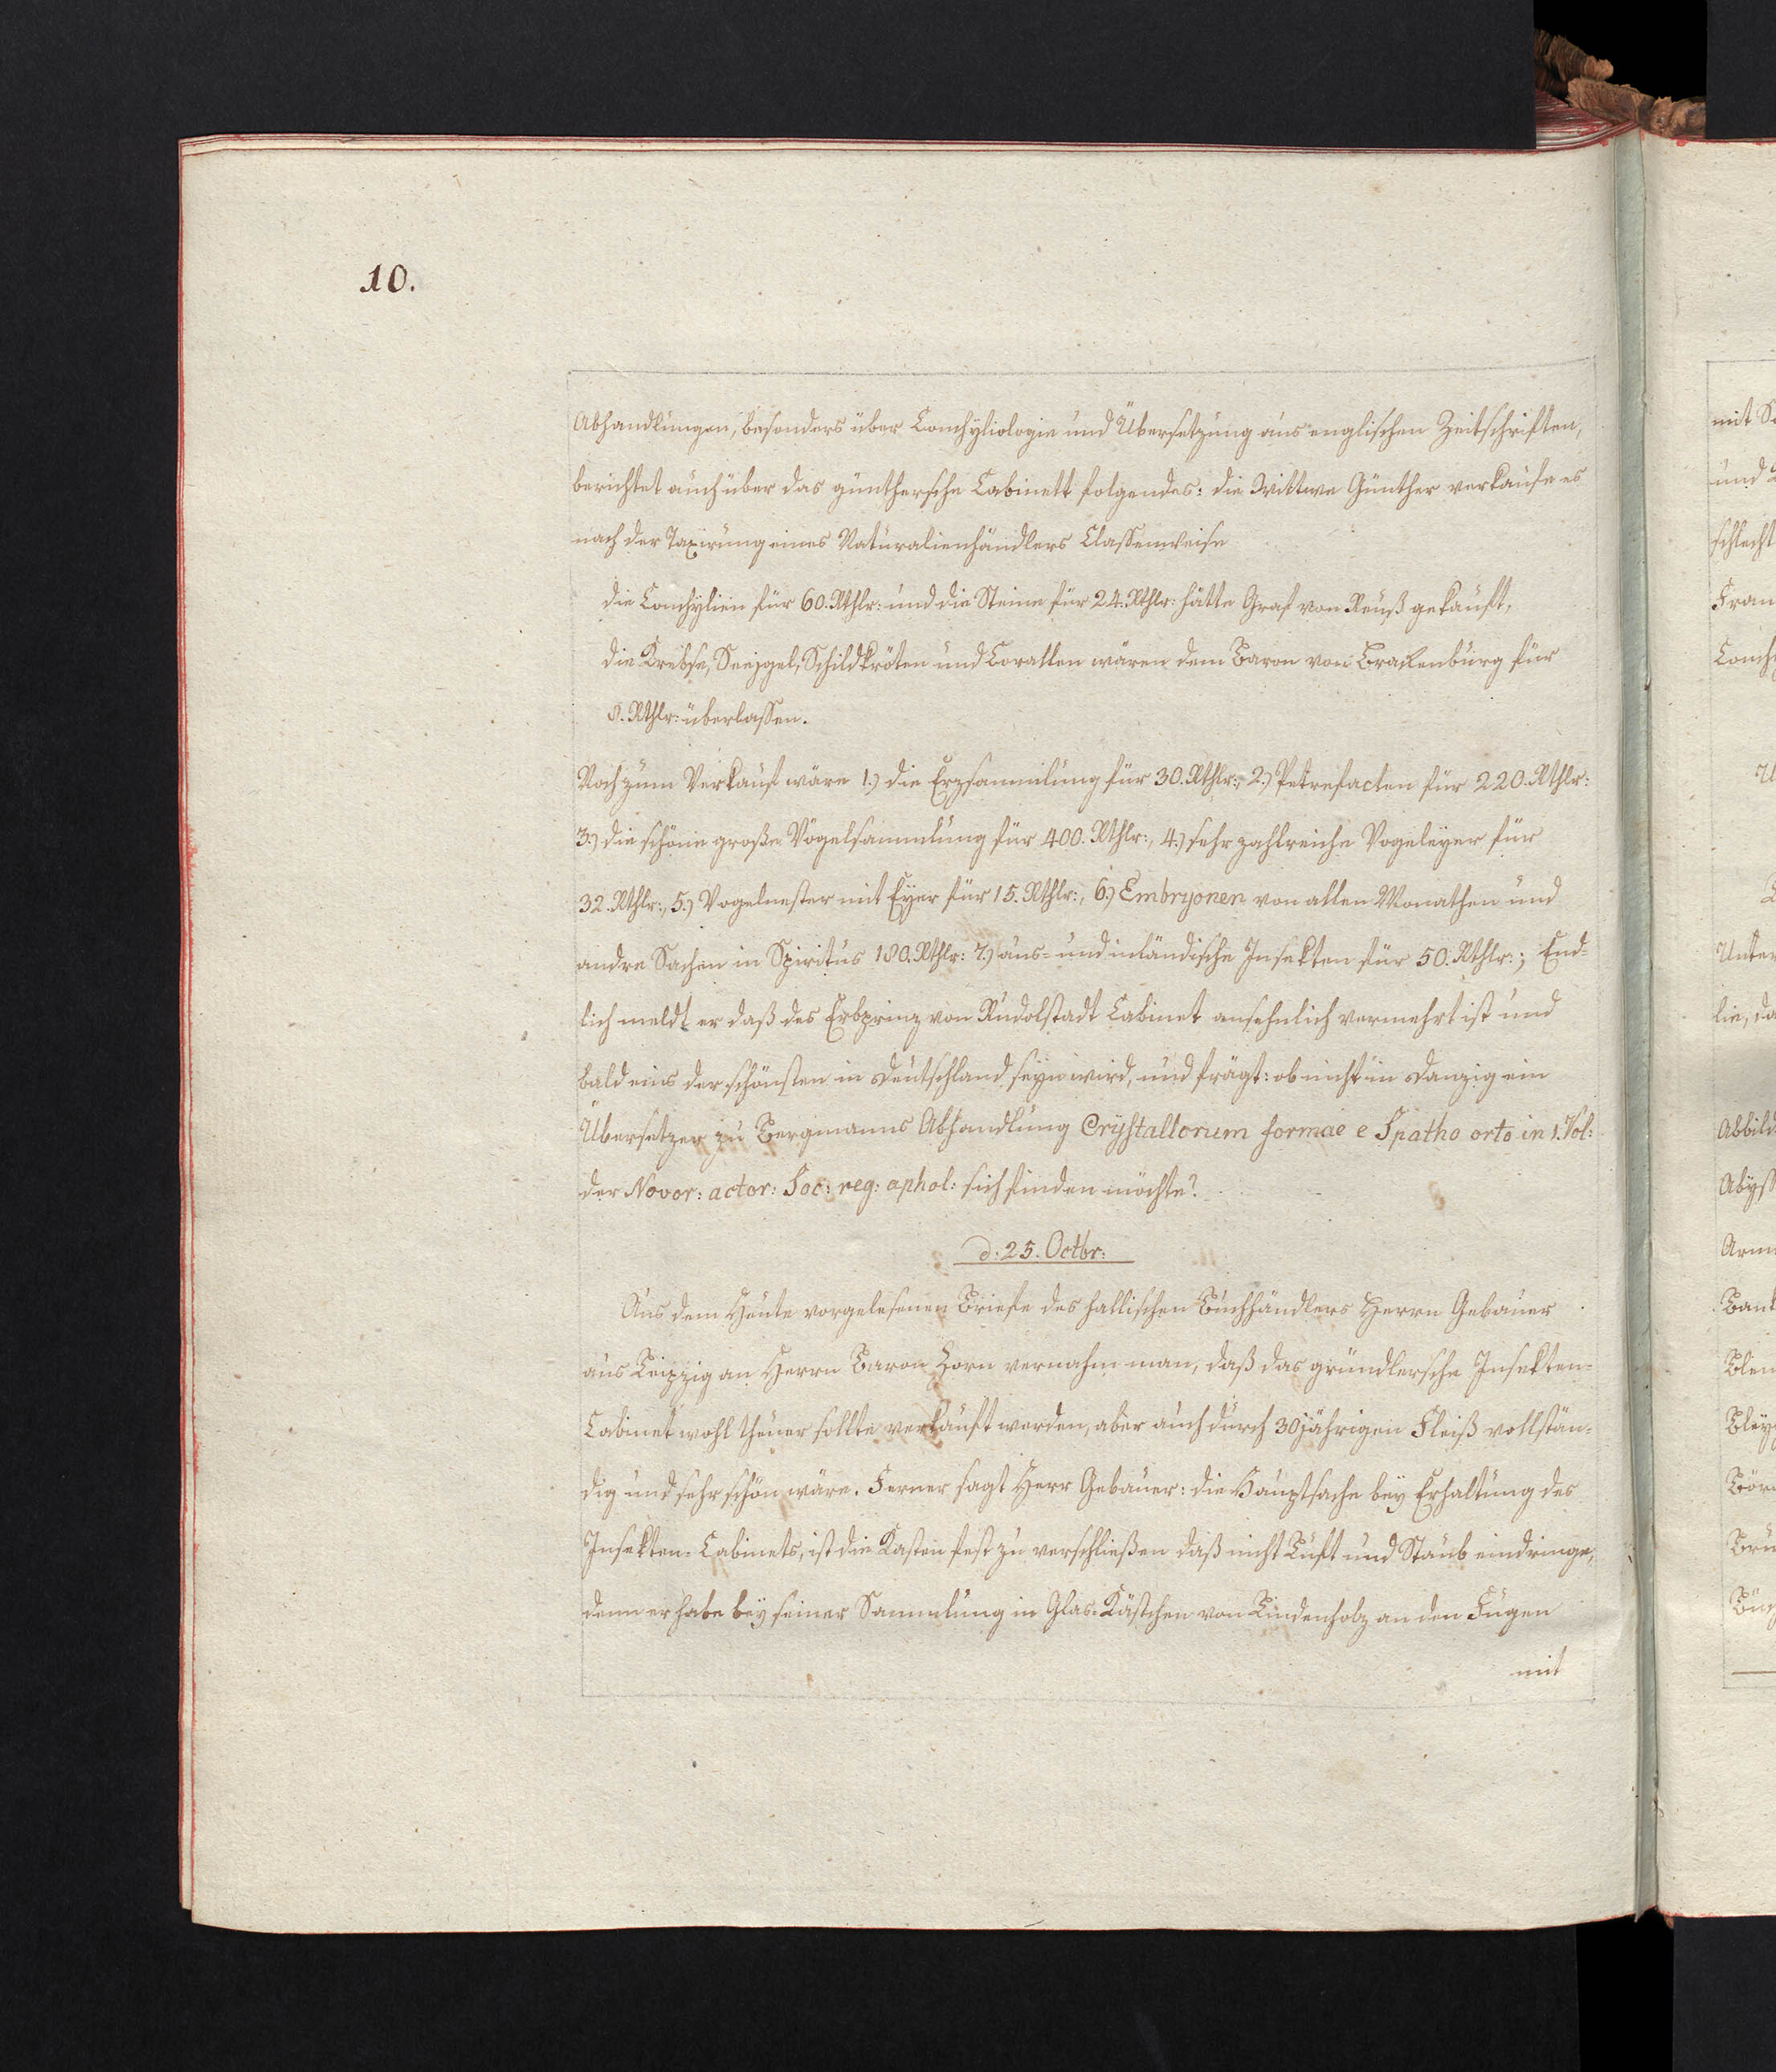 10.
Abhandlungen, besonders über Conchyliologie und Übersetzung aus englischen Zeitschriften,
berichtet auch über das günthersche Cabinett folgendes: die Wittwe Günther verkaufe es
nach der Taxirung eines Naturalienhändlers Classenweise
die Conchylien für 60. Rthlr: und die Steine für 24. Rthlr: hätte Graf von Reuß gekauft,
die Krebse, Seejgel, Schildkröten und Corallen wären dem Baron von Brackenburg für
8. Rthlr: überlassen.
Noch zum Verkauf wäre 1.) die Erzsammlung für 30. Rthlr:, 2.) Petrefacten für 220. Rthlr:
3.) die schöne große Vögelsammlung für 400. Rthlr:, 4.) sehr zahlreiche Vogeleyer für
32. Rthlr:, 5.) Vogelnester mit Eyer für 15. Rthlr:, 6.) Embryonen von allen Monathen und
andre Sachen in Spiritus 180. Rthlr: 7.) aus- und inländische Insekten für 50. Rthlr:; End-
lich meldt er daß des Erbprinz von Rudolstadt Cabinet ansehnlich vermehrt ist und
bald eins der schönsten in Deutschland seyn wird, und frägt: ob nicht in Danzig ein
Übersetzer zu Bergmanns Abhandlung Crystallorum formae e Spatho orto in 1. Vol:
der Novor: actor: Soc: reg: aphol: sich finden möchte?
d: 25. Octbr:
Aus dem Heute vorgelesenen Briefe des hallischen Buchhändlers Herrn Gebauer
aus Leipzig an Herrn Baron Zorn vernahm man, daß das gründlersche Insekten-
Cabinet wohl theuer sollte verkauft werden, aber auch durch 30jährigen Fleiß vollstän-
dig und sehr schön wäre. Ferner sagt Herr Gebauer: die Hauptsache bey Erhaltung des
Insekten-Cabinets, ist die Kasten fest zu verschließen daß nicht Luft und Staub eindringe,
denn er habe bey seiner Sammlung in Glas-Kästchen von Lindenholz an den Fugen
mit
mit
und
schlecht
Fran
Conch
Unter
lie, da
Abbild
Abyss